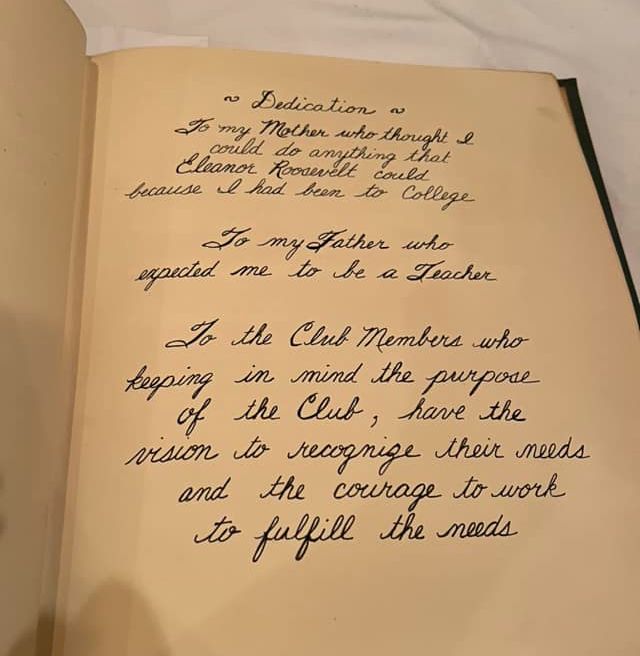 ~ Dedication ~
To my Mother who thought I
could do anything that
Eleanor Roosevelt could
because I had been to College
To my Father who
expected me to be a Teacher
To the Club Members who
keeping in mind the purpose
of the Club, have the
vision to recognize their needs
and the courage to work
to fulfill the needs